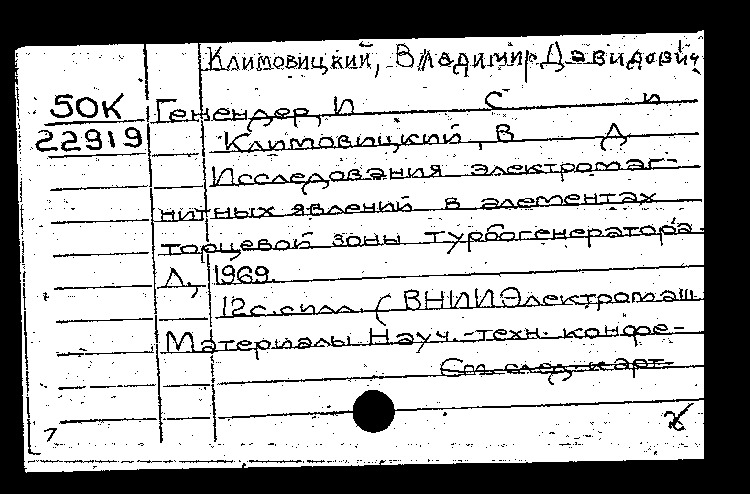 Климовицкий, Владимир Давидович
50К Генендер, И С и
22919 Климовицкий, В Д
Исследования электромаг-
нитных явлений в элементах
торцевой зоны турбогенератора.
Л., 1969.
12с. с илл. (ВНИИЭлектромаш.
Материалы Науч.-техн. конфе-
См. след. карт.
7